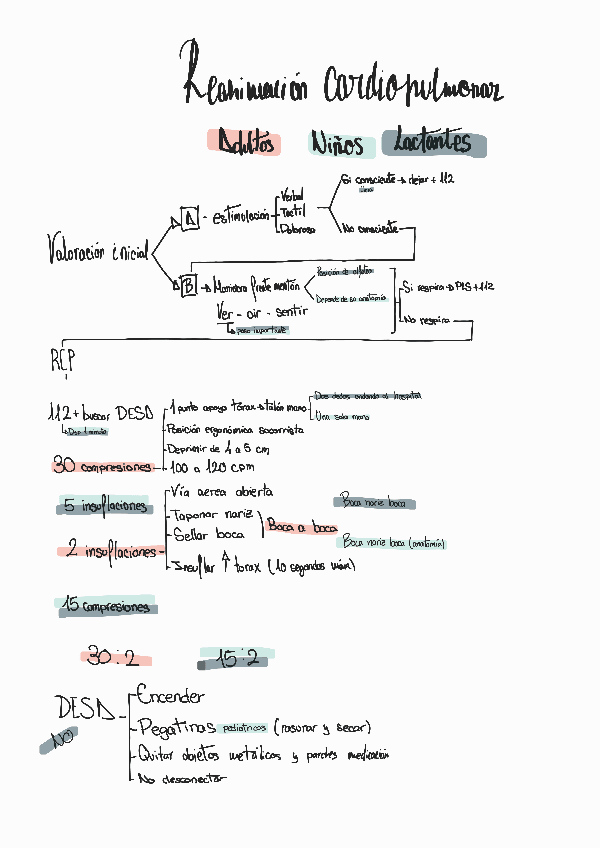 Reanimación cardiopulmonar
Adultos Niños Lactantes
Valoración inicial
A - estimulación
Verbal
Tactil
Dolorosa
Si consciente → dejar + 112
No consciente
B → Maniobra frente mentón
Posición de olfateo
Depende de su anatomía
Ver - oir - sentir
paso importante
Si respira → PLS + 112
No respira
RCP
112 + buscar DESA
1 punto apoyo torax → talón mano
Dos dedos
Una sola mano
Posición ergonómica socorrista
Deprimir de 4 a 5 cm
30 compresiones
100 a 120 cpm
5 insuflaciones
Vía aerea abierta
Taponar nariz
Sellar boca
Boca a boca
Boca nariz boca
Boca nariz boca (anatomía)
2 insuflaciones
Insuflar ↑ torax (10 segundos máx)
15 compresiones
30:2 15:2
DESA
NO
Encender
Pegatinas pediatricas (rasurar y secar)
Quitar objetos metálicos y parches medicación
No desconectar